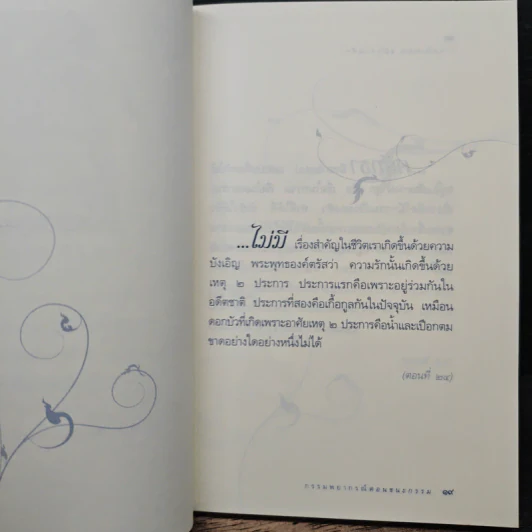 ...ไม่มี เรื่องสำคัญในชีวิตเราเกิดขึ้นด้วยความ
บังเอิญ พระพุทธองค์ตรัสว่า ความรักนั้นเกิดขึ้นด้วย
เหตุ ๒ ประการ ประการแรกคือเพราะอยู่ร่วมกันใน
อดีตชาติ ประการที่สองคือเกื้อกูลกันในปัจจุบัน เหมือน
ดอกบัวที่เกิดเพราะอาศัยเหตุ ๒ ประการคือน้ำและเปือกตม
ขาดอย่างใดอย่างหนึ่งไม่ได้
(ตอนที่ ๒๔)
กรรมพยากรณ์ตอนชนะกรรม ๑๙